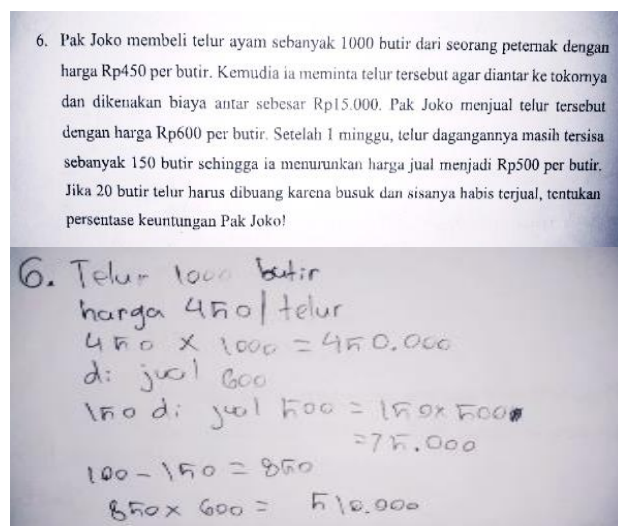 6. Pak Joko membeli telur ayam sebanyak 1000 butir dari seorang peternak dengan
harga Rp450 per butir. Kemudia ia meminta telur tersebut agar diantar ke tokornya
dan dikenakan biaya antar sebesar Rp15.000. Pak Joko menjual telur tersebut
dengan harga Rp600 per butir. Setelah 1 minggu, telur dagangannya masih tersisa
sebanyak 150 butir sehingga ia menurunkan harga jual menjadi Rp500 per butir.
Jika 20 butir telur harus dibuang karena busuk dan sisanya habis terjual, tentukan
persentase keuntungan Pak Joko!
6. Telur 1000 butir
harga 450/telur
450 x 1000 = 450.000
di jual 600
150 di jual 500 = 150x500
=75.000
100-150 = 850
850x 600 = 510.000